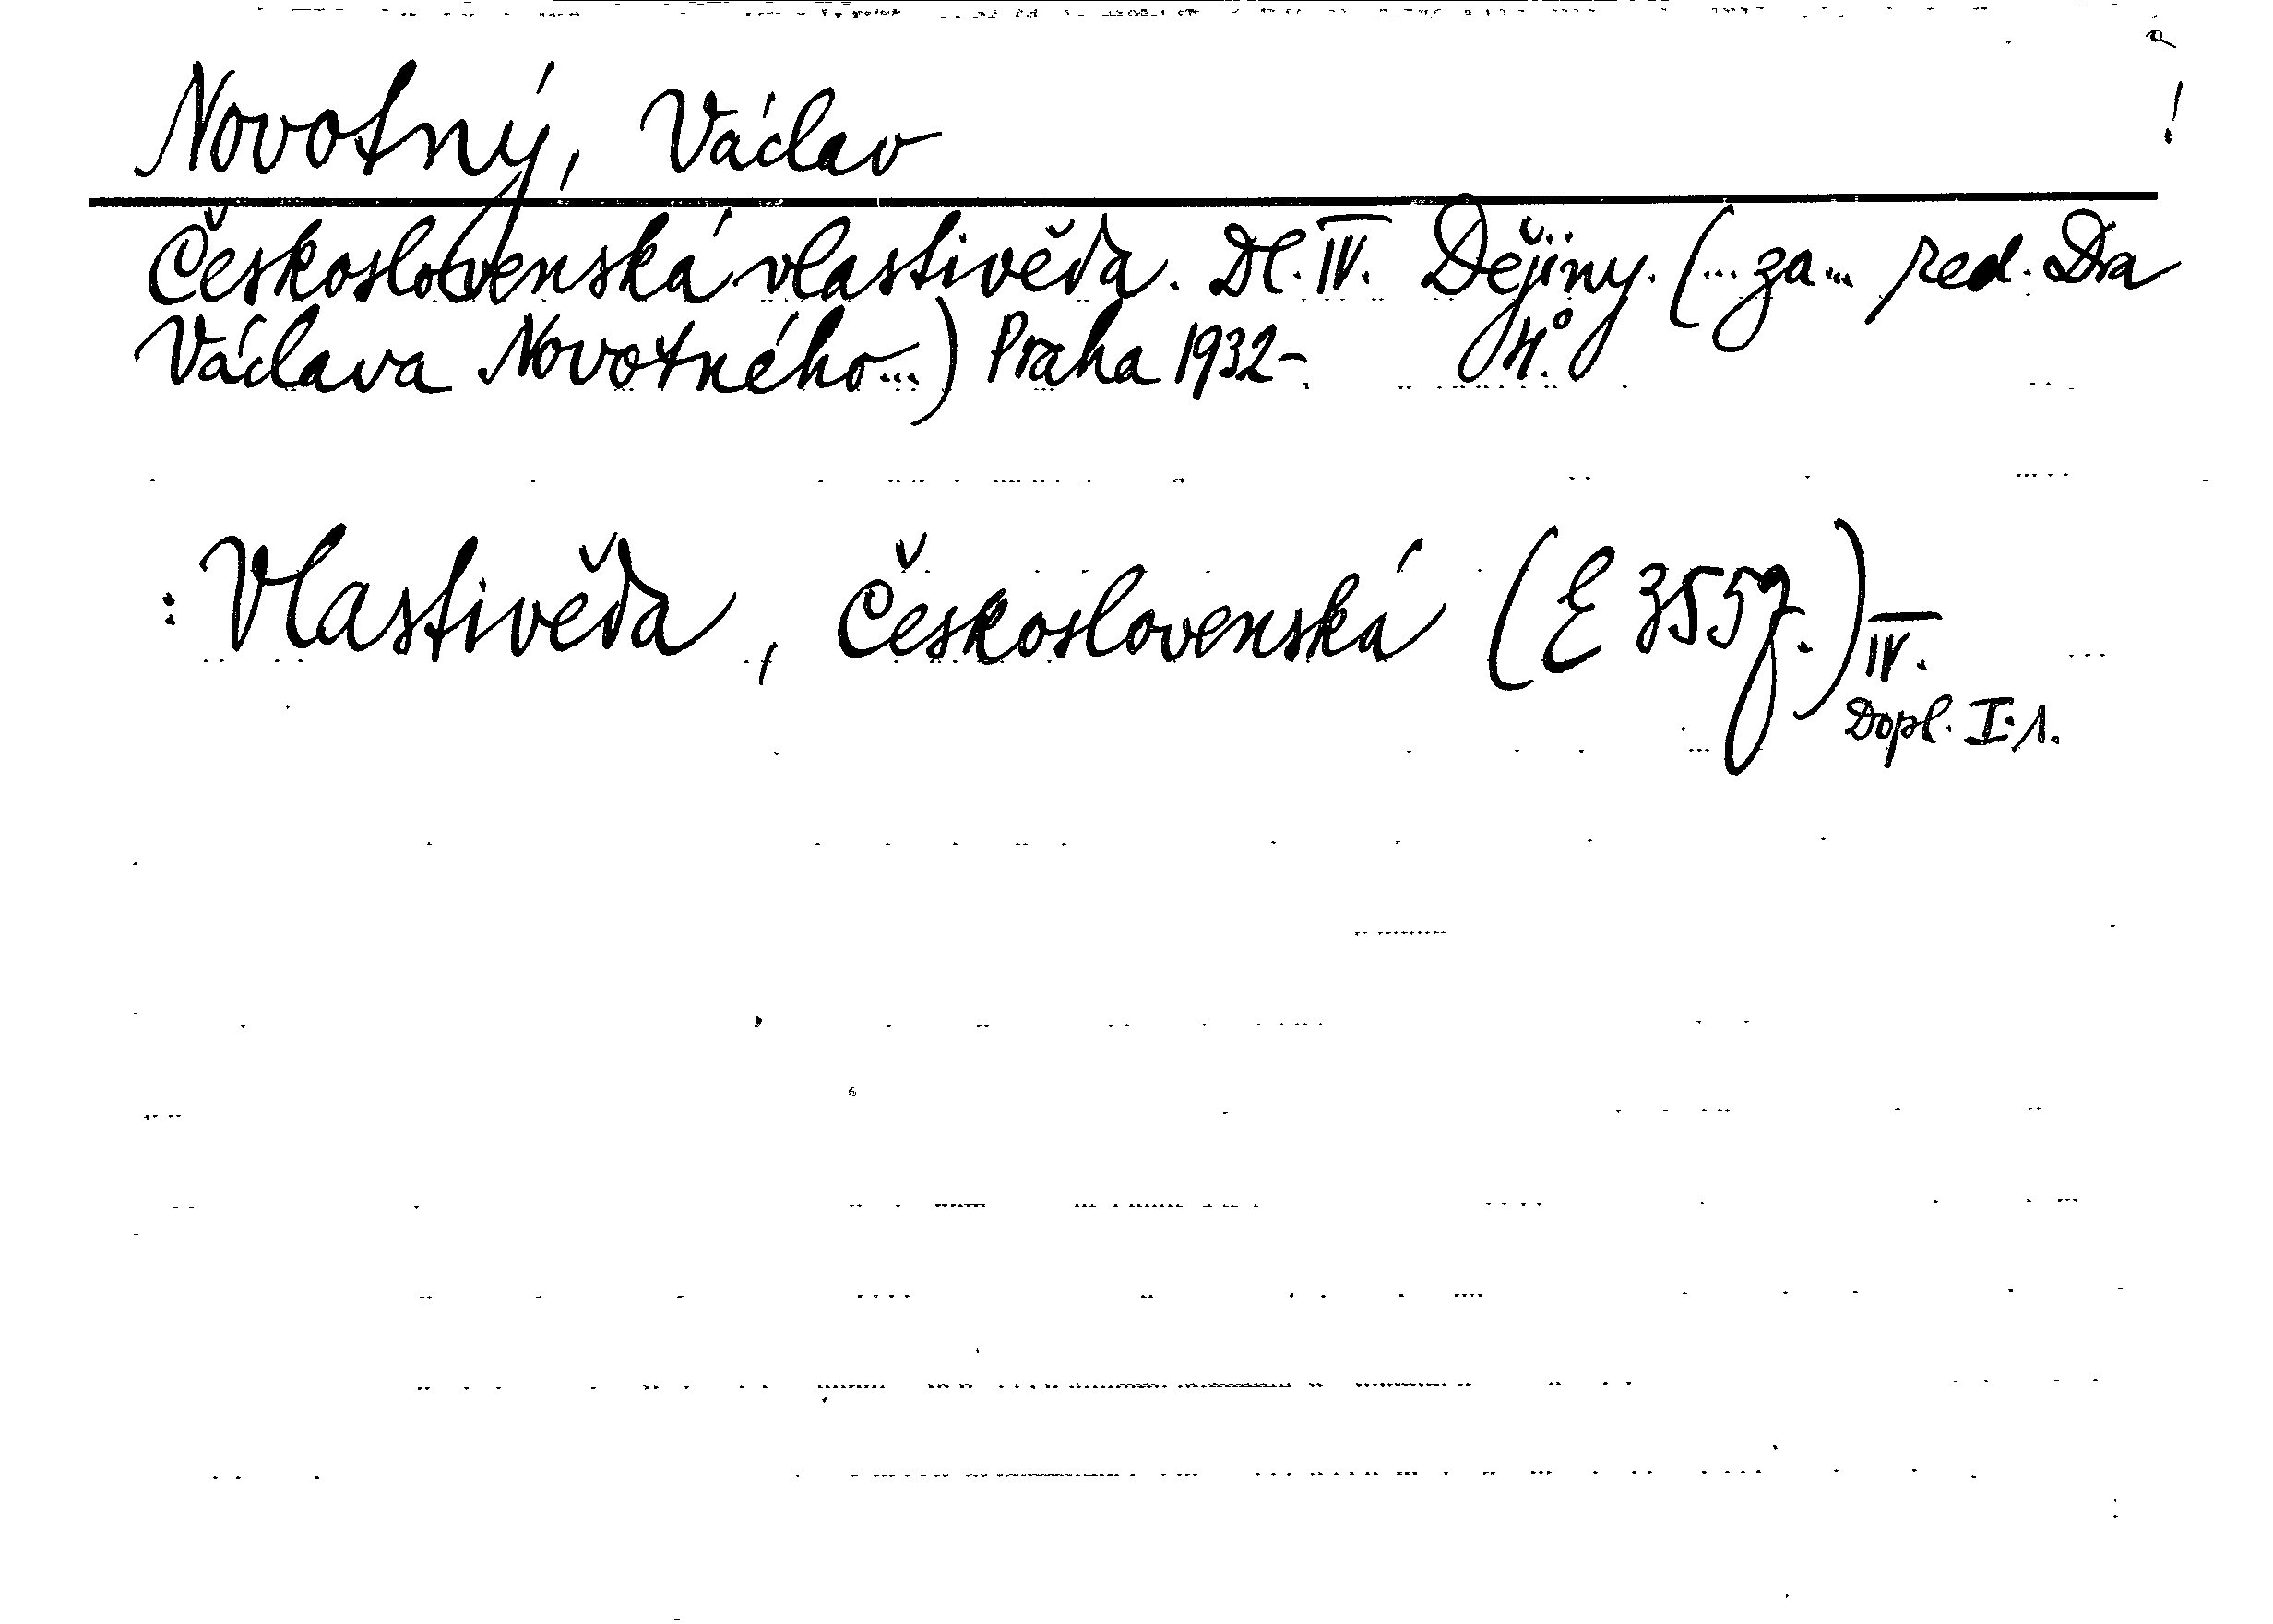 Novotný, Václav
!
Československá vlastivěda. Dl. IV. Dějiny. (... za ... red. Dra
Václava Novotného ...) Praha 1932-. 4°.
: Vlastivěda, Československá (E 355 g.) IV.
Dopl. I. 1.